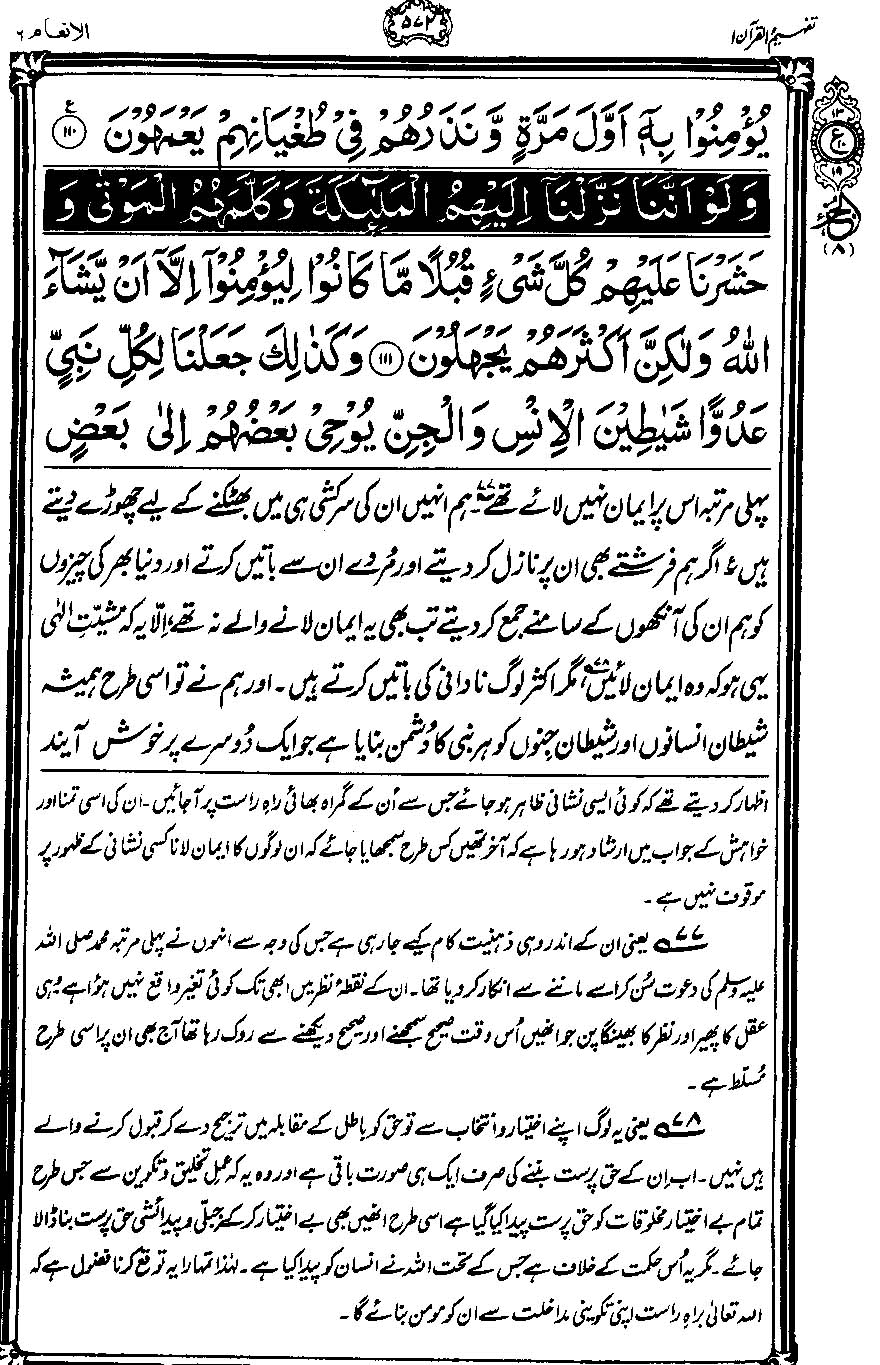 تفہیم القرآن ۱
۵۷۲
الانعام ۶
يُؤْمِنُوْا بِهٖٓ اَوَّلَ مَرَّةٍ وَّنَذَرُهُمْ فِيْ طُغْيَانِهِمْ يَعْمَهُوْنَ ﴿۱۱۰﴾ ع
۱۳
ع
۱۹
وَلَوْ اَنَّنَا نَزَّلْنَآ اِلَيْهِمُ الْمَلٰٓئِكَةَ وَكَلَّمَهُمُ الْمَوْتٰى وَ
الجزء
(۸)
حَشَرْنَا عَلَيْهِمْ كُلَّ شَيْءٍ قُبُلًا مَّا كَانُوْا لِيُؤْمِنُوْٓا اِلَّآ اَنْ يَّشَآءَ
اللّٰهُ وَلٰكِنَّ اَكْثَرَهُمْ يَجْهَلُوْنَ ﴿۱۱۱﴾ وَكَذٰلِكَ جَعَلْنَا لِكُلِّ نَبِيٍّ
عَدُوًّا شَيٰطِيْنَ الْاِنْسِ وَالْجِنِّ يُوْحِيْ بَعْضُهُمْ اِلٰى بَعْضٍ
پہلی مرتبہ اس پر ایمان نہیں لائے تھے۷۷۔ ہم انہیں ان کی سرکشی ہی میں بھٹکنے کے لیے چھوڑے دیتے
ہیں ؏ اگر ہم فرشتے بھی ان پر نازل کر دیتے اور مُردے ان سے باتیں کرتے اور دنیا بھر کی چیزوں
کو ہم ان کی آنکھوں کے سامنے جمع کر دیتے تب بھی یہ ایمان لانے والے نہ تھے، اِلّا یہ کہ مشیّتِ الٰہی
یہی ہو کہ وہ ایمان لائیں۷۸، مگر اکثر لوگ نادانی کی باتیں کرتے ہیں۔ اور ہم نے تو اسی طرح ہمیشہ
شیطان انسانوں اور شیطان جنوں کو ہر نبی کا دُشمن بنایا ہے جو ایک دُوسرے پر خوش آیند
اظہار کر دیتے تھے کہ کوئی ایسی نشانی ظاہر ہو جائے جس سے اُن کے گمراہ بھائی راہِ راست پر آجائیں۔ ان کی اسی تمنا اور
خواہش کے جواب میں ارشاد ہو رہا ہے کہ آخر تمھیں کس طرح سمجھایا جائے کہ ان لوگوں کا ایمان لانا کسی نشانی کے ظہور پر
موقوف نہیں ہے۔
۷۷ یعنی ان کے اندر وہی ذہنیت کام کیے جا رہی ہے جس کی وجہ سے انہوں نے پہلی مرتبہ محمد صلی اللہ
علیہ وسلم کی دعوت سُن کر اسے ماننے سے انکار کر دیا تھا۔ ان کے نقطۂ نظر میں ابھی تک کوئی تغیر واقع نہیں ہؤا ہے وُہی
عقل کا پھیر اور نظر کا بھینگا پن جو انھیں اُس وقت صحیح سمجھنے اور صحیح دیکھنے سے روک رہا تھا آج بھی ان پر اسی طرح
مُسلّط ہے۔
۷۸ یعنی یہ لوگ اپنے اختیار و انتخاب سے تو حق کو باطل کے مقابلہ میں ترجیح دے کر قبول کرنے والے
ہیں نہیں۔ اب اِن کے حق پرست بننے کی صرف ایک ہی صورت باقی ہے اور وہ یہ کہ عملِ تخلیق و تکوین سے جس طرح
تمام بے اختیار مخلوقات کو حق پرست پیدا کیا گیا ہے اسی طرح انھیں بھی بے اختیار کر کے جِبلّی و پیدائشی حق پرست بنا ڈالا
جائے۔ مگر یہ اُس حکمت کے خلاف ہے جس کے تحت اللہ نے انسان کو پیدا کیا ہے۔ لہٰذا تمہارا یہ توقع کرنا فضول ہے کہ
اللہ تعالیٰ براہِ راست اپنی تکوینی مداخلت سے ان کو مومن بنائے گا۔